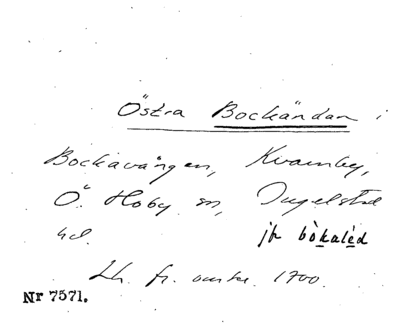 Östra Bockändan i
Bockavången, Kvarnby,
Ö. Hoby sn, Ingelstad
hd. jfr bòkaléd
Lh. fr. omkr. 1700.
Nr 7571.